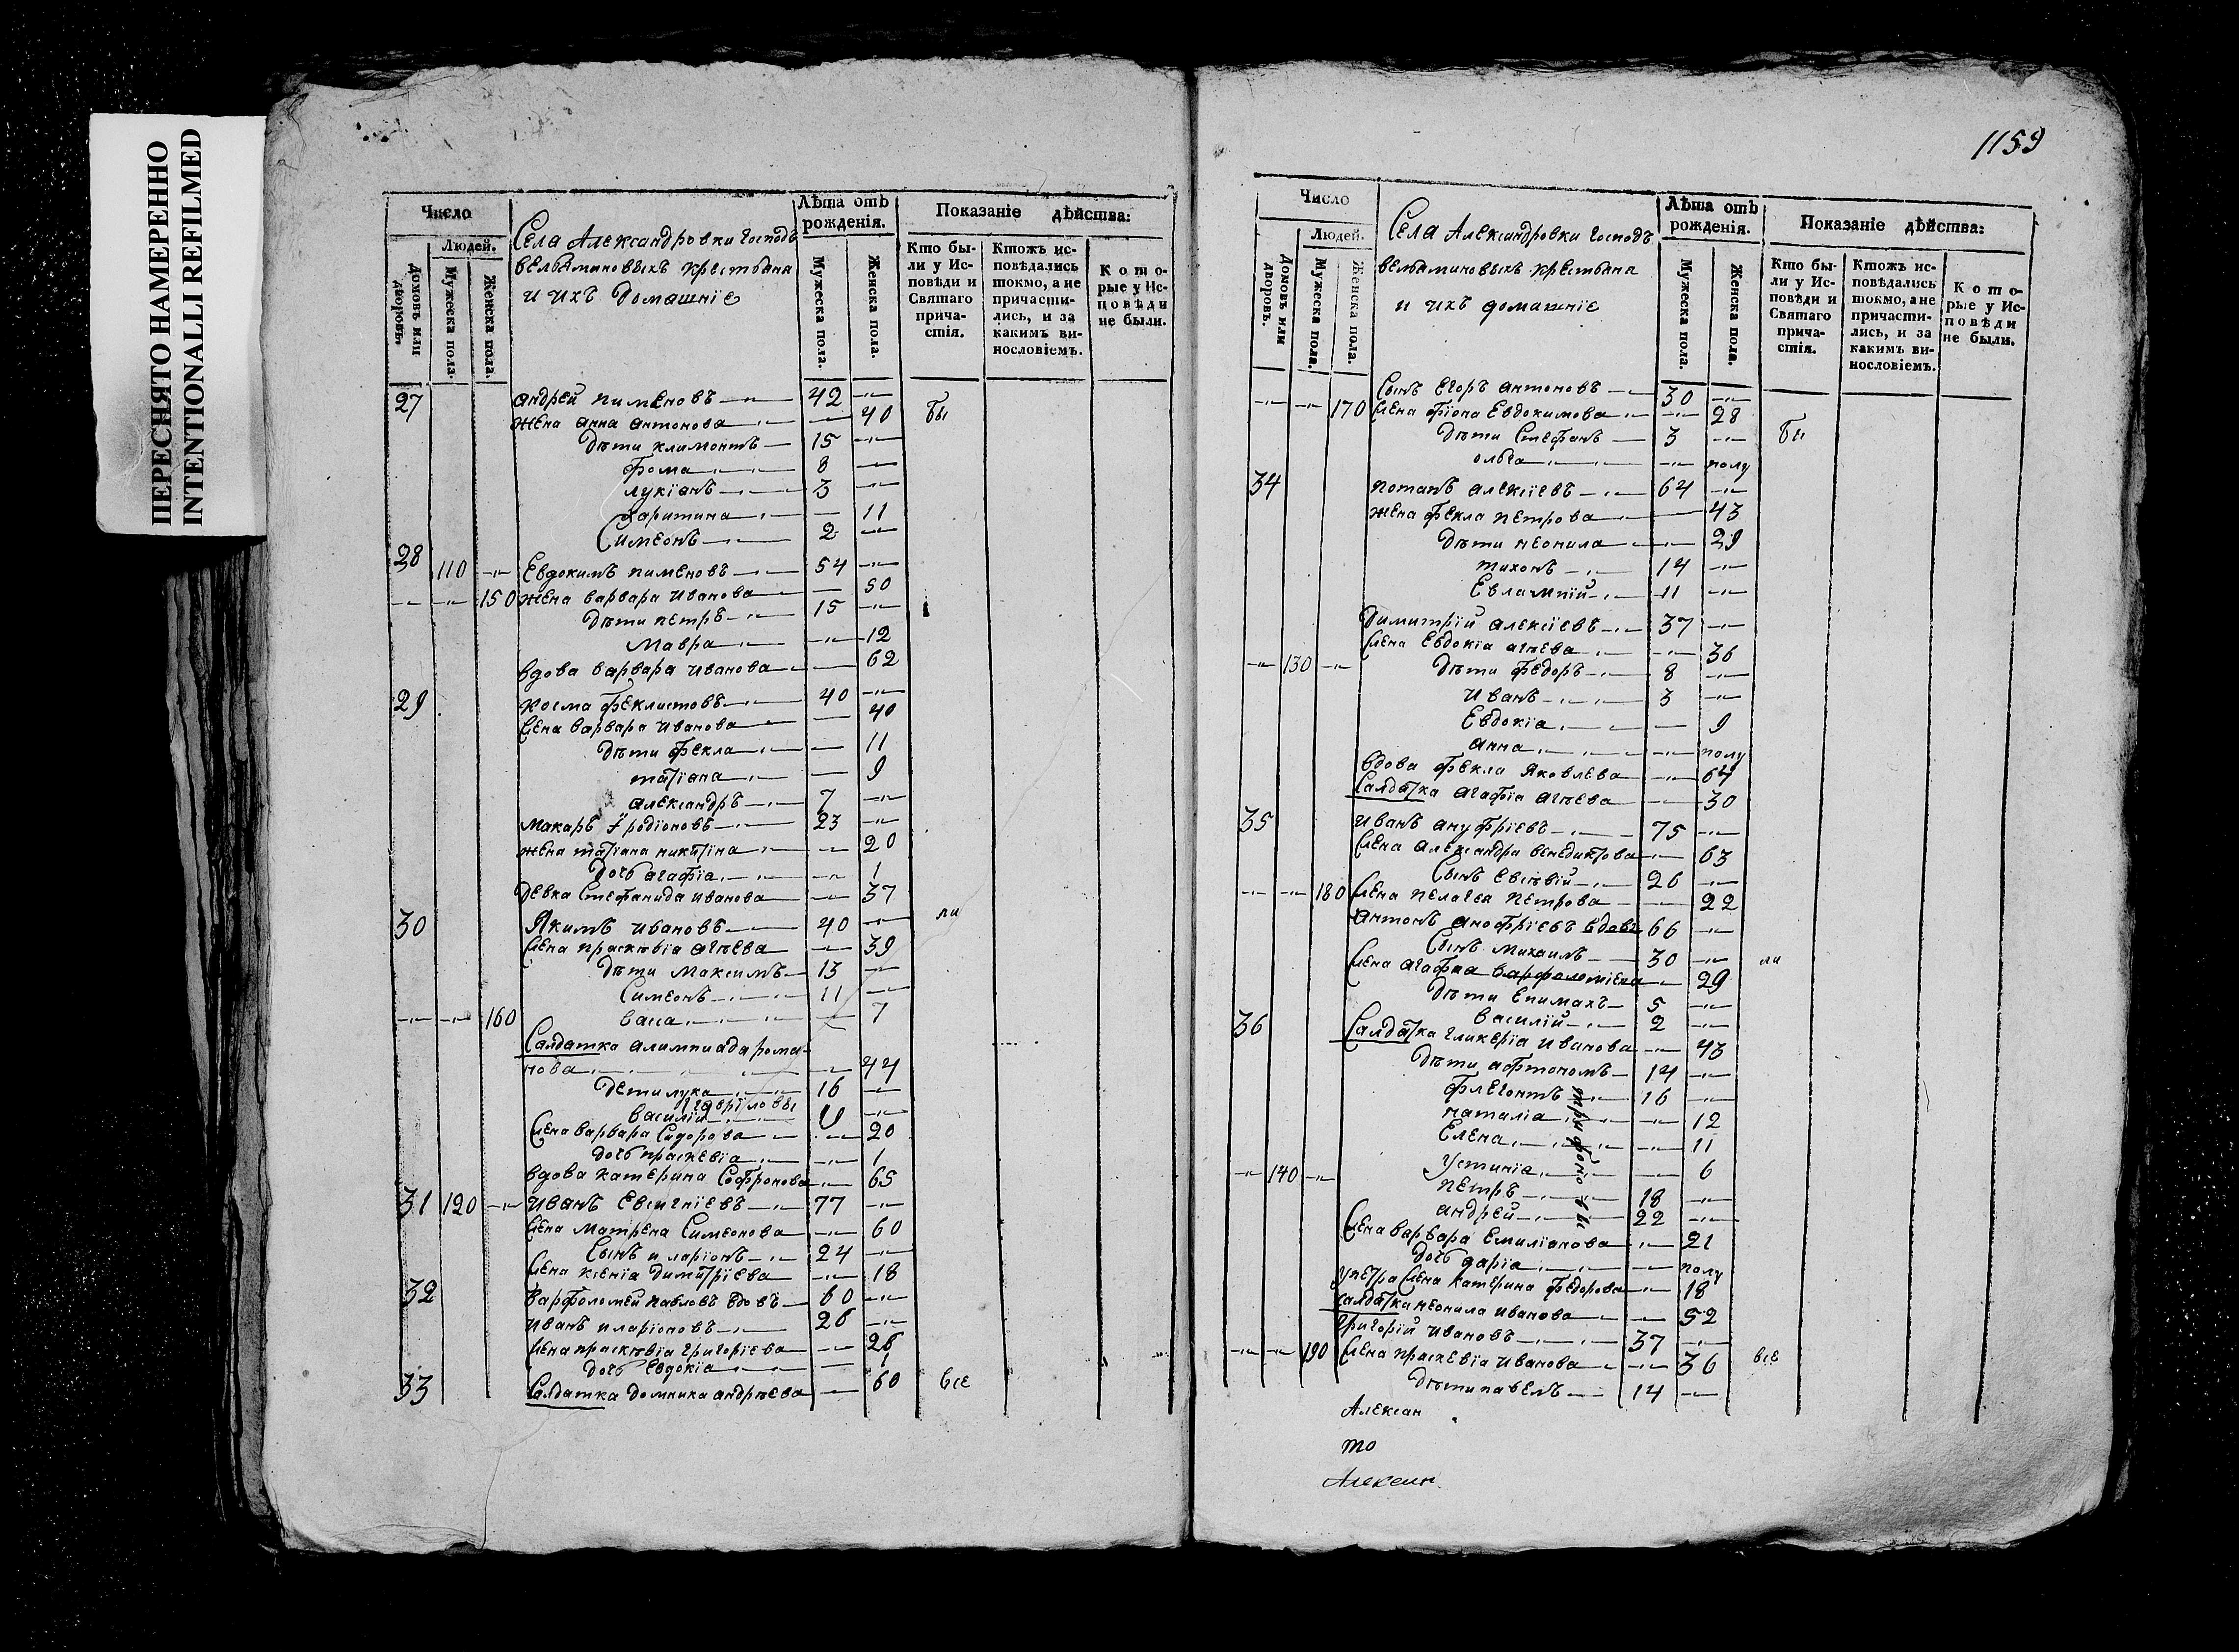 ПЕРЕСНЯТО НАМЕРЕННО
INTENTIONALLI REFILMED
Число
Людей.
Домовъ или дворовъ.
Мужеска пола.
Женска пола.
Села Александровки господъ
вельяминовыхъ крестьяна
и ихъ домашніе
Лѣта отъ рожденія.
Мужеска пола.
Женска пола.
Показаніе дѣйства:
Кто бы-
ли у Ис-
повѣди и
Святаго
прича-
стія.
Ктожъ ис-
повѣдались
токмо, а не
причасти-
лись, и за
какимъ ви-
нословіемъ.
Кото-
рые у Ис-
повѣди
не были.
27 андрей пименовъ 42
жена анна антонова 40 бы
дѣти климонтъ 15
фома 8
лукіанъ 3
харитина 11
Симеонъ 2
28 110 Евдокимъ пименовъ 54
150 жена варвара иванова 50
дѣти петръ 15
мавра 12
вдова варвара иванова 62
29 косма феклистовъ 40
жена варвара иванова 40
дѣти фекла 11
татіана 9
александръ 7
макаръ родіоновъ 23
жена татіана никитіна 20
дочь агафіа 1
девка Стефанида иванова 37
30 Якимъ ивановъ 40 ли
жена прасквіа агѣева 39
дѣти максимъ 13
Симеонъ 11
160 васа 7
Салдатка алимпиада рома-
нова 44
дети лука 16
василій гавріловы
жена варвара Сидорова 20
дочь праскевіа 1
вдова катерина Софронова 65
31 120 иванъ Евсигніевъ 77
жена матрена Симеонова 60
Сынъ иларіонъ 24
жена ксеніа димитріева 18
32 варфоломей павловъ вдовъ 60
иванъ иларіоновъ 26
жена прасквіа григоріева 26
дочь Евдокіа 1
33 Салдатка домника андрѣева 60 все
1159
Число
Людей.
Домовъ или дворовъ.
Мужеска пола.
Женска пола.
Села Александровки господъ
вельаминовыхъ крестьяна
и ихъ домашніе
Лѣта отъ рожденія.
Мужеска пола.
Женска пола.
Показаніе дѣйства:
Кто бы-
ли у Ис-
повѣди и
Святаго
прича-
стія.
Ктожъ ис-
повѣдались
токмо, а не
причасти-
лись, и за
какимъ ви-
нословіемъ.
Кото-
рые у Ис-
повѣди
не были.
Сынъ Егоръ антоновъ 30
170 жена фіона Евдокимова 28
дѣти Стефанъ 3 бы
ольга полу
34 потапъ алексіевъ 64
жена фекла петрова 43
дѣти неонила 29
тихонъ 14
Евлампій 11
димитрій алексіевъ 37
жена Евдокіа агѣева 36
130 дѣти федоръ 8
иванъ 3
Евдокіа 9
анна полу
вдова фекла яковлева 64
Салдатка агафіа агѣева 30
35 иванъ ануфріевъ 75
жена александра венедиктова 63
Сынъ Евсѣвій 26
180 жена пелагеа петрова 22
антонъ анофріевъ вдовъ 66
Сынъ михаилъ 30 ли
жена агафиа варфоломіева 29
дѣти Епимахъ 5
василій 2
36 Салдатка гликеріа иванова 43
дѣти афтономъ 14
флегонтъ 16
наталіа 12
Елена 11
устиніа 6
140 петръ 18
андрей 22
трифоновы
жена варвара Емиліанова 21
дочь даріа полу
у петра жена катерина федорова 18
салдатка неонила иванова 52
григорій ивановъ 37
190 жена праскевіа иванова 36 все
дѣти павелъ 14
Алексан
то
Алексан